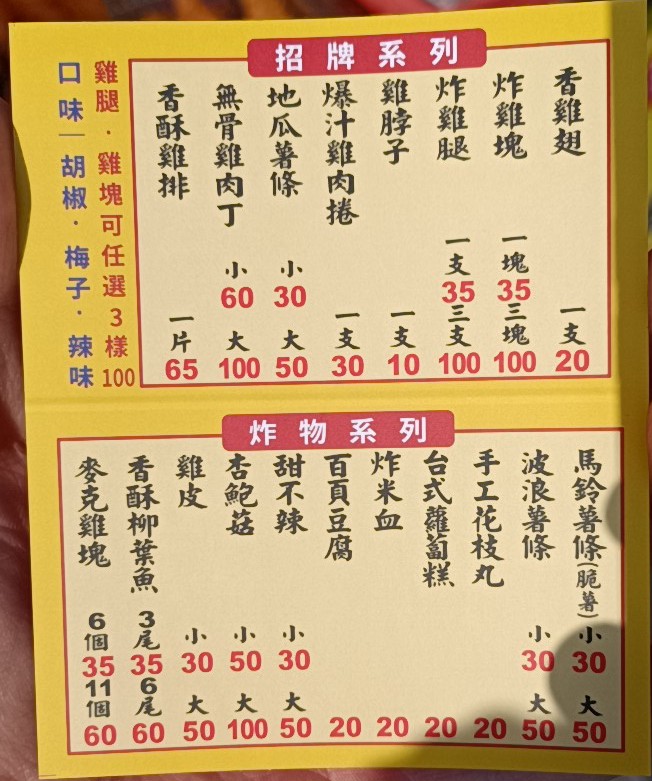 招牌系列
香雞翅 一支 20
炸雞塊 一塊 35 三塊 100
炸雞腿 一支 35 三支 100
雞脖子 一支 10
爆汁雞肉捲 一支 30
地瓜薯條 小 30 大 50
無骨雞肉丁 小 60 大 100
香酥雞排 一片 65
雞腿·雞塊可任選3樣100
口味|胡椒·梅子·辣味
炸物系列
馬鈴薯條(脆薯) 小 30 大 50
波浪薯條 小 30 大 50
手工花枝丸 20
台式蘿蔔糕 20
炸米血 20
百頁豆腐 20
甜不辣 小 30 大 50
杏鮑菇 小 50 大 100
雞皮 小 30 大 50
香酥柳葉魚 3尾 35 6尾 60
麥克雞塊 6個 35 11個 60